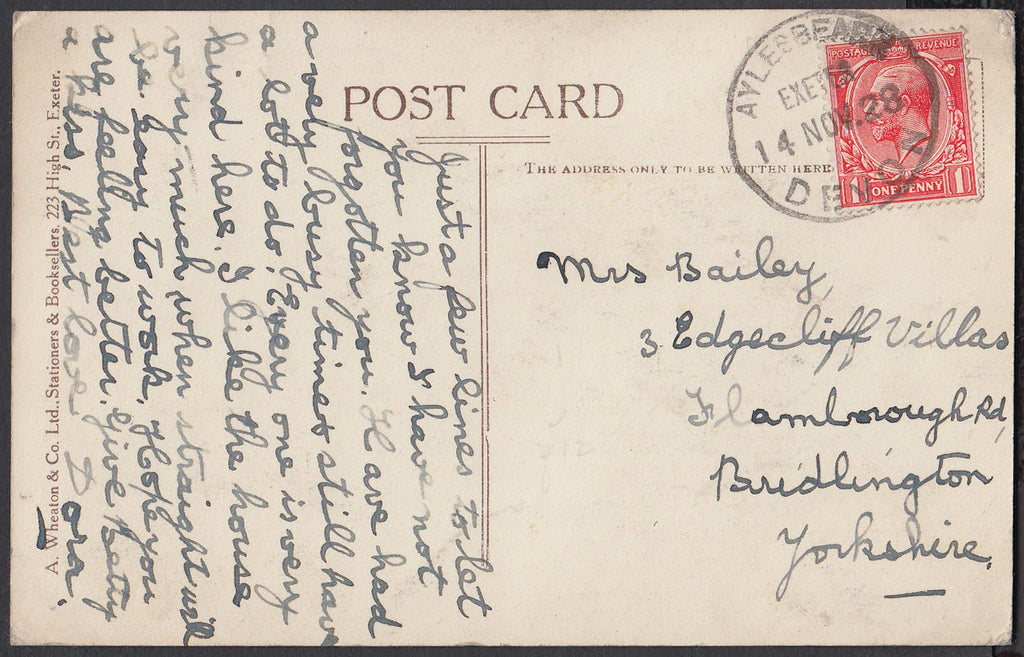 POST CARD
THE ADDRESS ONLY TO BE WRITTEN HERE
AYLESBEARE
EXETER
14 NOV. 28
DEVON
POSTAGE REVENUE
1 ONE PENNY 1
Just a few lines to let
you know I have not
forgotten you. Have had
a very busy time & still have
a lot to do. Every one is very
kind here. I like the house
very much when straight will
be easy to work. Hope you
are feeling better. Give Betty
a kiss, Best love Dora.
Mrs Bailey,
3 Edgecliff Villas
Flamborough Rd,
Bridlington
Yorkshire.
A. Wheaton & Co. Ltd., Stationers & Booksellers, 223 High St., Exeter.